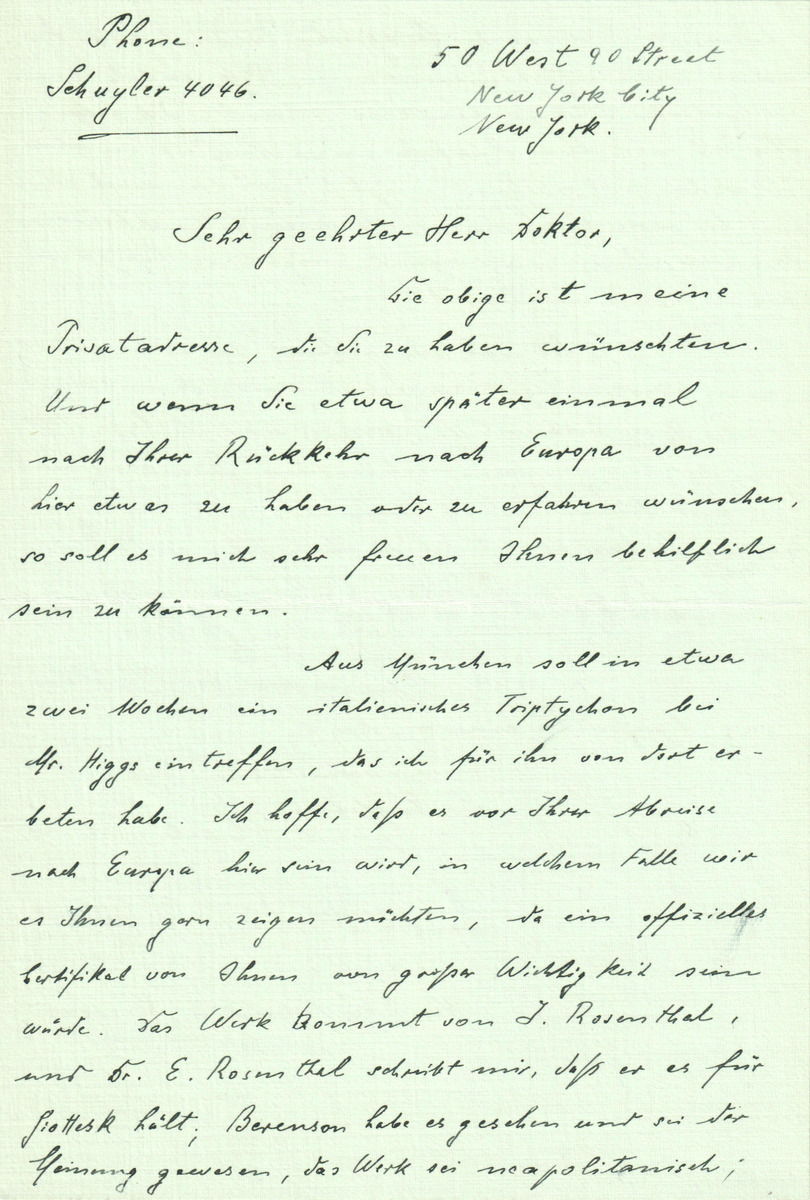 Phone:
Schuyler 4046.
50 West 90 Street
New York City
New York.
Sehr geehrter Herr Doktor,
Die obige ist meine
Privatadresse, die Sie zu haben wünschten.
Und wenn Sie etwa später einmal
nach Ihrer Rückkehr nach Europa von
hier etwas zu haben oder zu erfahren wünschen,
so soll es mich sehr freuen Ihnen behilflich
sein zu können.
Aus München soll in etwa
zwei Wochen ein italienisches Triptychon bei
Mr. Higgs eintreffen, das ich für ihn von dort er-
beten habe. Ich hoffe, daß es vor Ihrer Abreise
nach Europa hier sein wird, in welchem Falle wir
es Ihnen gern zeigen möchten, da ein offizielles
Certifikat von Ihnen von großer Wichtigkeit sein
würde. Das Werk kommt von J. Rosenthal,
und Dr. E. Rosenthal schreibt mir, daß er es für
Giottesk hält; Berenson habe es gesehen und sei der
Meinung gewesen, das Werk sei neapolitanisch;